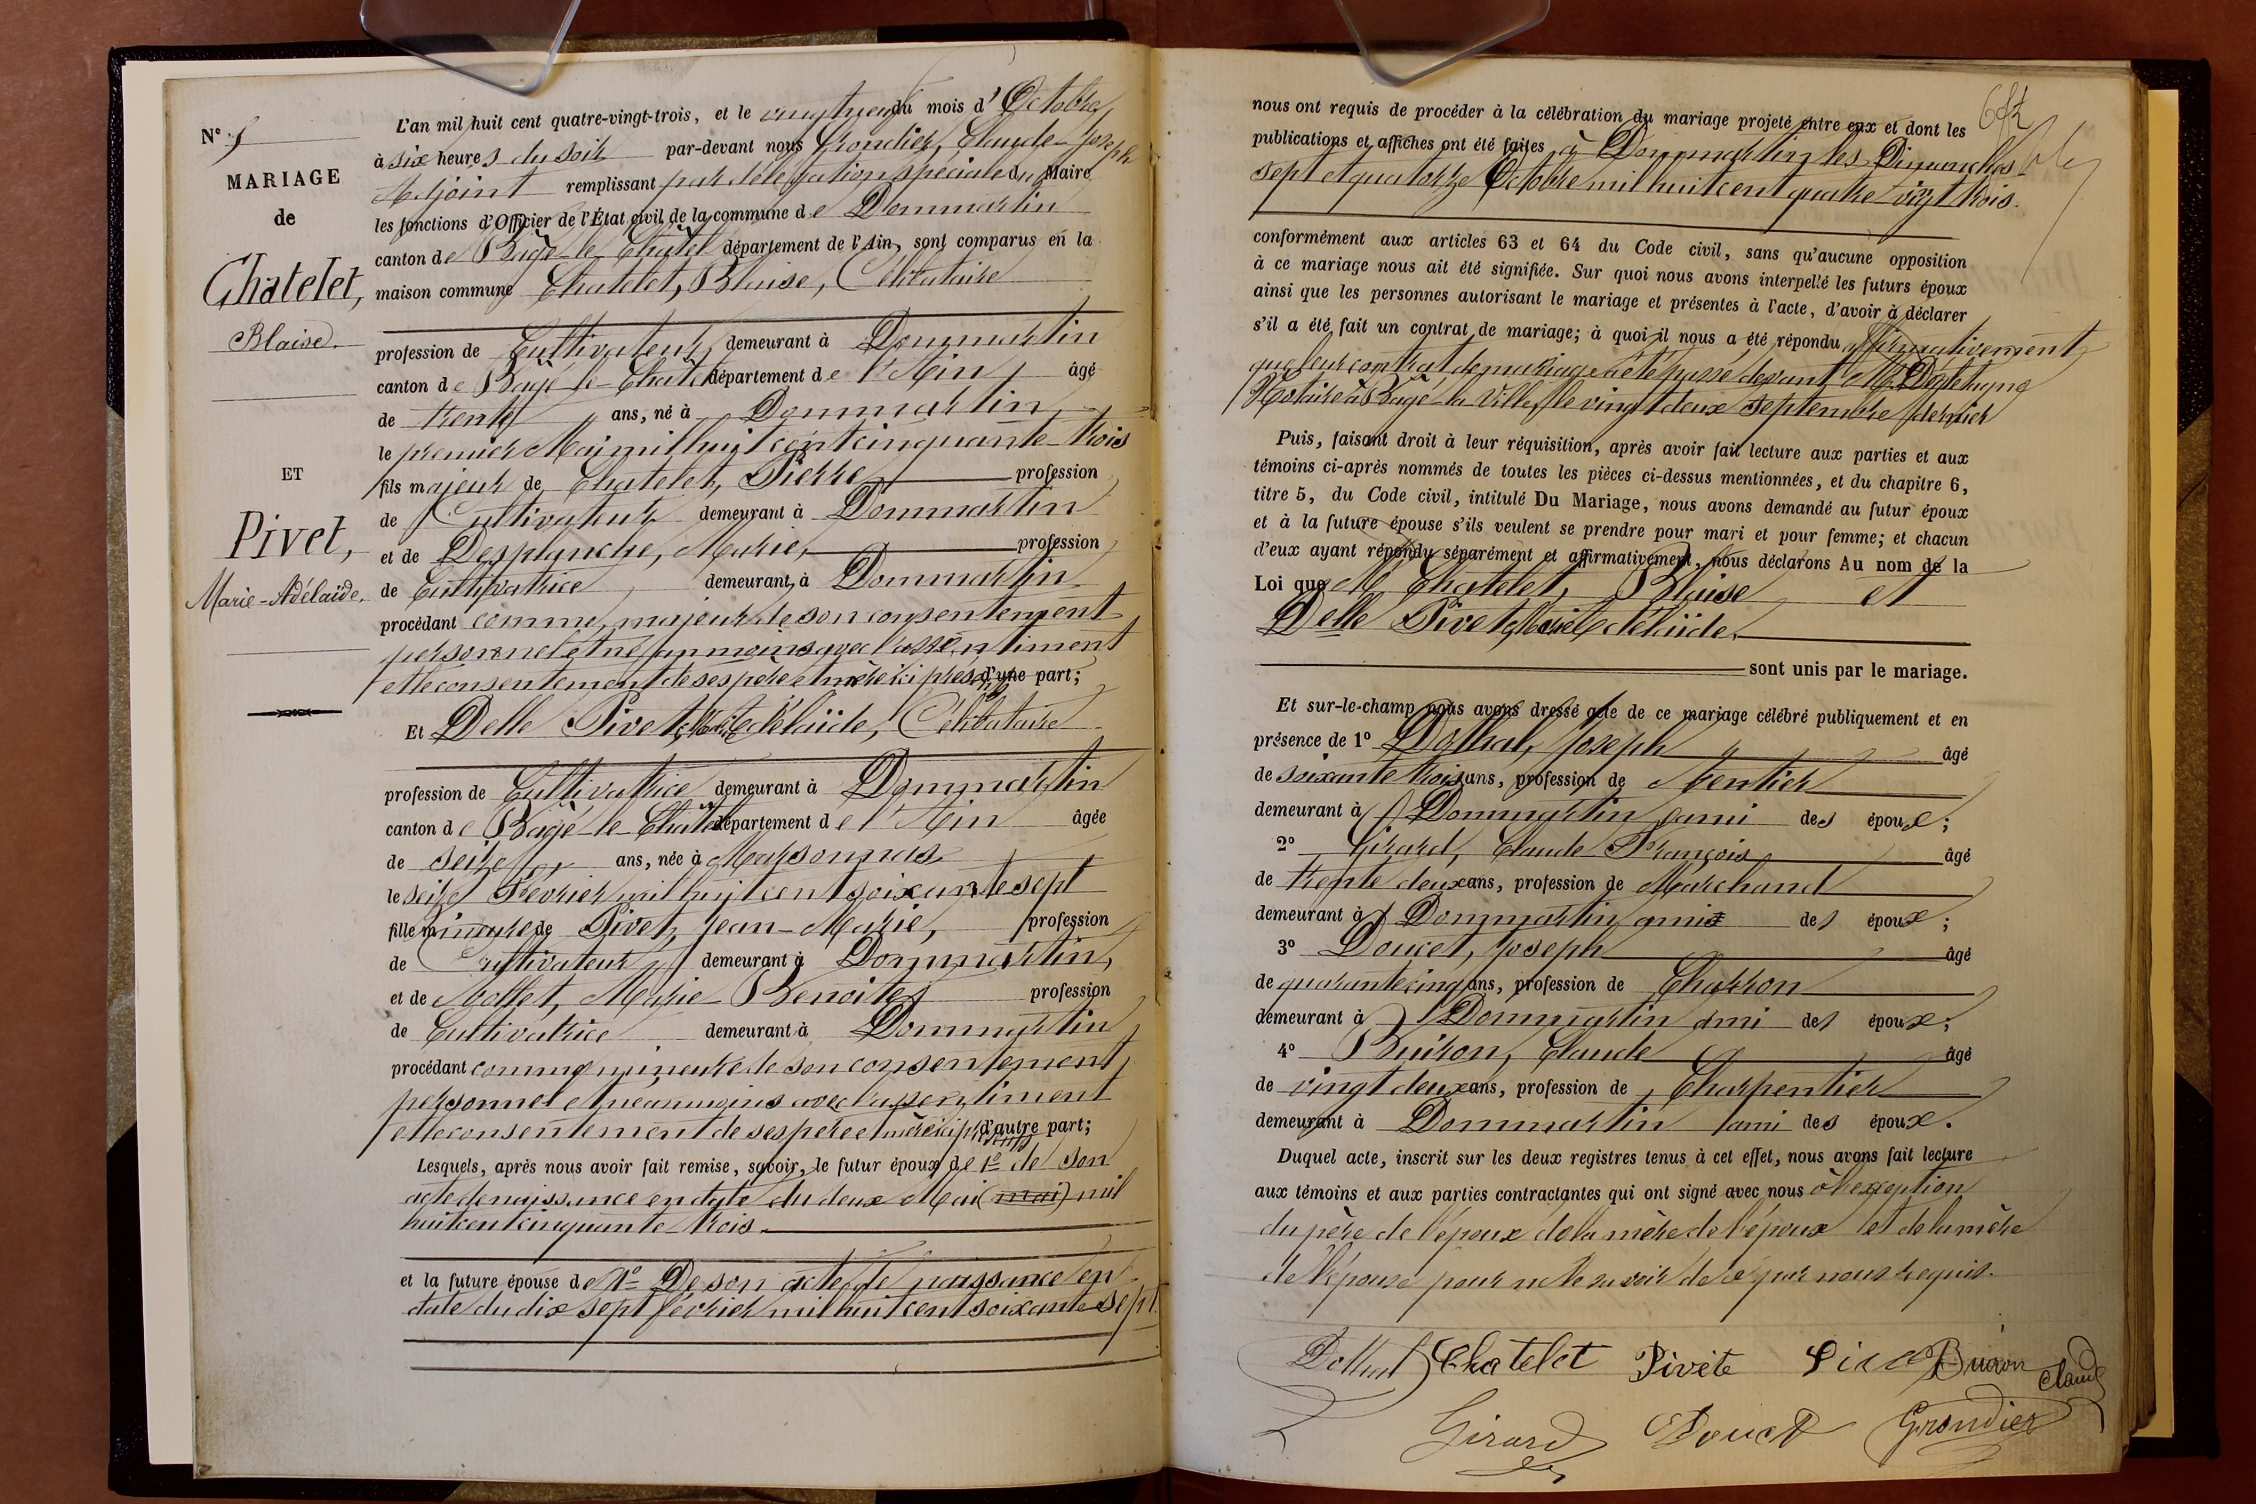 N° 9
MARIAGE
de
Chatelet,
Blaise.
ET
Pivet,
Marie-Adélaïde.
L'an mil huit cent quatre-vingt-trois, et le du mois d'Octobre
à six heures du soir par-devant nous Grondier, Claude-Joseph
Adjoint remplissant par délégation spéciale du Maire
les fonctions d'Officier de l'État civil de la commune de Dommartin
canton de Bagé-le-Châtel département de l'Ain, sont comparus en la
maison commune Chatelet, Blaise, Célibataire
profession de Cultivateur, demeurant à Dommartin
canton de Bagé-le-Châtel département de l'Ain, âgé
de trente ans, né à Dommartin,
le premier Mai mil huit cent cinquante-trois
fils majeur de Chatelet, Pierre profession
de Cultivateur demeurant à Dommartin
et de Desplanche, Marie, profession
de Cultivatrice, demeurant, à Dommartin
procédant comme majeur de son consentement
personnel et né anmoins avec l'assentiment
et le consentement de ses père et mère ici présents d'une part;
Et Delle Pivet, Marie Adélaïde, Célibataire
profession de Cultivatrice demeurant à Dommartin
canton de Bagé-le-Châtel département de l'Ain âgée
de seize ans, née à Marsonnas
le seize Février mil huit cent soixante sept
fille mineure de Pivet, Jean-Marie, profession
de Cultivateur demeurant à Dommartin,
et de Mollet, Marie-Benoite, profession
de Cultivatrice demeurant à Dommartin
procédant comme mineure de son consentement
personnel et néanmoins avec l'assentiment
et le consentement de ses père et mère ici présents d'autre part;
Lesquels, après nous avoir fait remise, savoir, le futur époux de 1° de son
acte de naissance en date du deux Mai (mai) mil
huit cent cinquante-trois.
et la future épouse de 1° De son acte de naissance en
date du dix sept février mil huit cent soixante-sept.
nous ont requis de procéder à la célébration du mariage projeté entre eux et dont les
publications et affiches ont été faites à Dommartin les Dimanches
sept et quatorze Octobre mil huit cent quatre-vingt trois.
conformément aux articles 63 et 64 du Code civil, sans qu'aucune opposition
à ce mariage nous ait été signifiée. Sur quoi nous avons interpellé les futurs époux
ainsi que les personnes autorisant le mariage et présentes à l'acte, d'avoir à déclarer
s'il a été fait un contrat de mariage; à quoi il nous a été répondu affirmativement
que leur contrat de mariage a été passé devant Me
Notaire à Bagé-la-Ville, le vingt deux septembre dernier
Puis, faisant droit à leur réquisition, après avoir fait lecture aux parties et aux
témoins ci-après nommés de toutes les pièces ci-dessus mentionnées, et du chapitre 6,
titre 5, du Code civil, intitulé Du Mariage, nous avons demandé au futur époux
et à la future épouse s'ils veulent se prendre pour mari et pour femme; et chacun
d'eux ayant répondu séparément et affirmativement, nous déclarons Au nom de la
Loi que M. Chatelet, Blaise et
Delle Pivet, Marie Adélaïde,
sont unis par le mariage.
Et sur-le-champ nous avons dressé acte de ce mariage célébré publiquement et en
présence de 1° Joseph âgé
de soixante trois ans, profession de Rentier
demeurant à Dommartin ami des époux;
2° Girard, Claude François âgé
de trente deux ans, profession de Marchand
demeurant à Dommartin ami des époux;
3° Doucet, Joseph âgé
de quarante cinq ans, profession de Charron
demeurant à Dommartin ami des époux;
4° Buiron, Claude âgé
de vingt deux ans, profession de Charpentier
demeurant à Dommartin ami des époux.
Duquel acte, inscrit sur les deux registres tenus à cet effet, nous avons fait lecture
aux témoins et aux parties contractantes qui ont signé avec nous à l'exception
du père de l'époux de la mère de l'époux et de la mère
de l'épouse pour ne le savoir de ce par nous requis.
Chatelet Pivete Buiron Claude
Girard Doucet Grondier